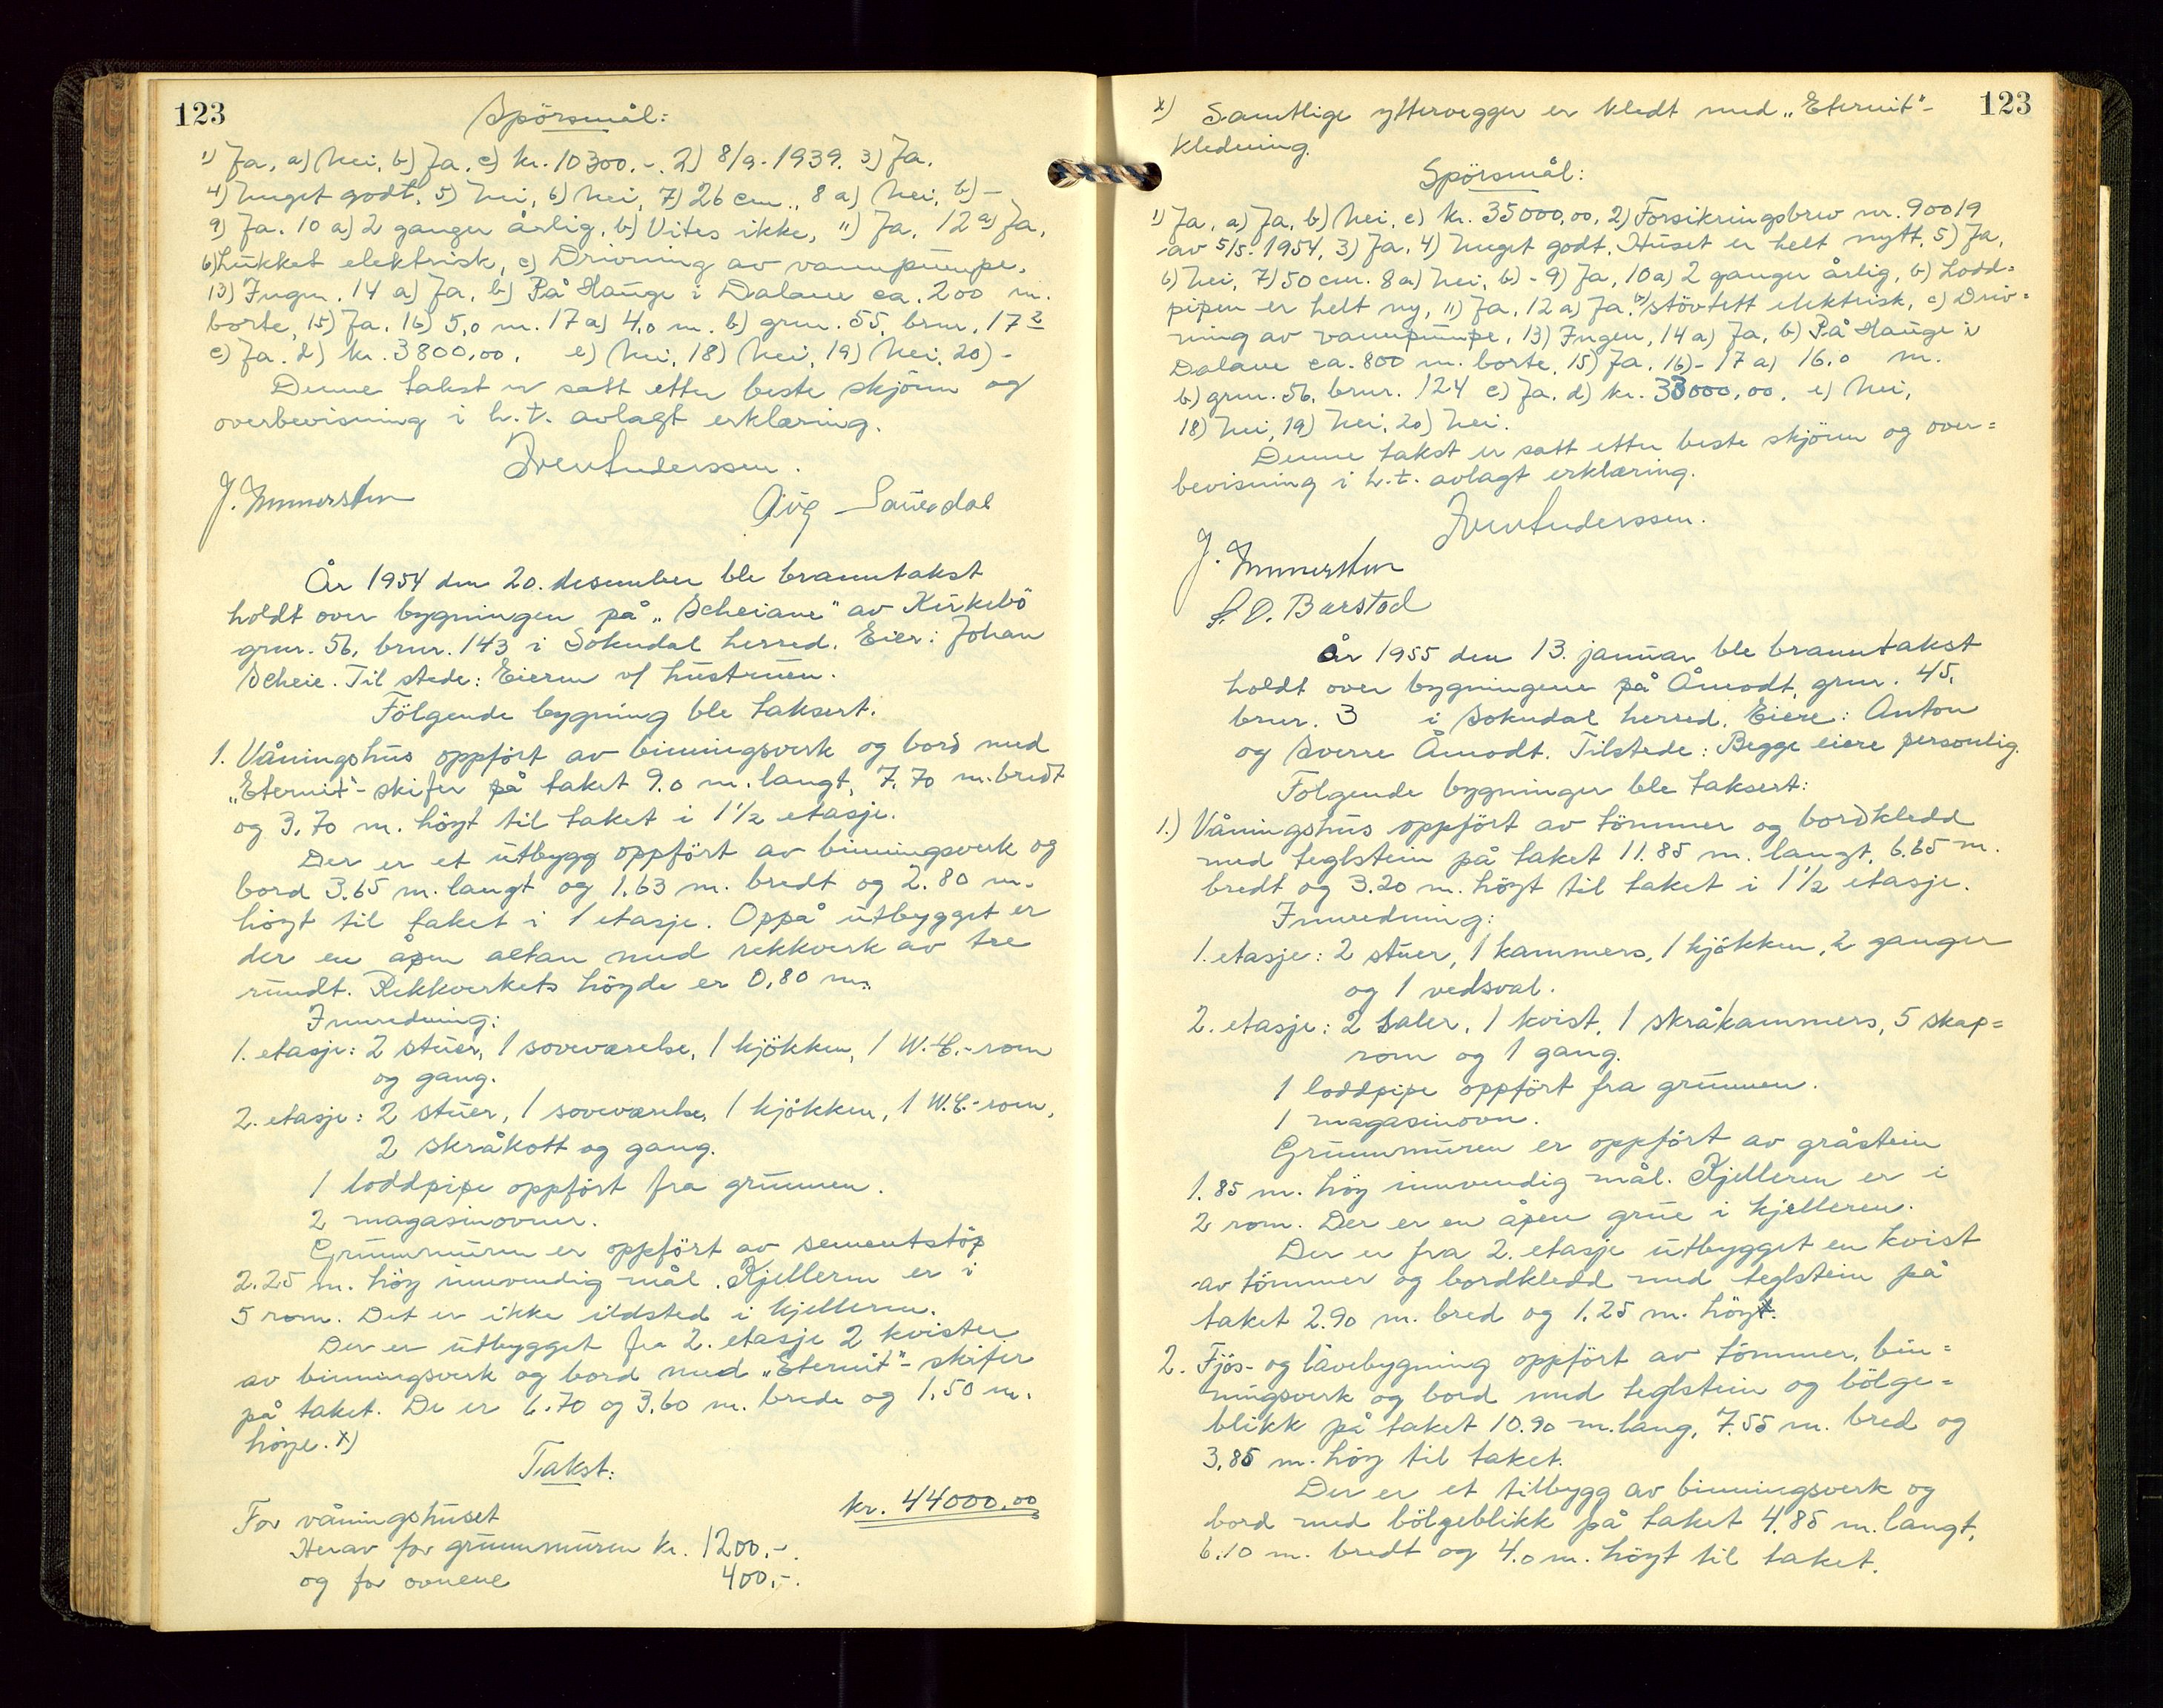 123
Spörsmål:
1) Ja, a) Nei, b) Ja, c) kr. 10300.-. 2) 8/9-1939. 3) Ja.
4) Meget godt, 5) Nei, 6) Nei, 7) 26 cm., 8 a) Nei, b) -
9) Ja. 10 a) 2 ganger årlig, b) Vites ikke, 11) Ja, 12 a) Ja,
b) Lukket elektrisk, c) Drivning av vannpumpe.
13) Ingen. 14 a) Ja, b) På Hauge i Dalane ca. 200 m.
borte, 15) Ja, 16) 5,0 m. 17 a) 4,0 m. b) grnr. 55, brnr. 17 2
c) Ja. d) kr. 3800,00. e) Nei, 18) Nei, 19) Nei, 20) -
Denne takst er satt etter beste skjönn og
overbevisning i h.t. avlagt erklæring.
Iver Anderssen.
J. Immerstein
Aug Sauredal
År 1954 den 20. desember ble branntakst
holdt over bygningen på "Scheiane" av Kirkebö
grnr. 56, brnr. 143 i Sokndal herred. Eier: Johan
Scheie. Til stede: Eieren v/ hustruen.
Fölgende bygning ble taksert.
1. Våningshus oppfört av binningsverk og bord med
"Eternit"-skifer på taket 9.0 m. langt, 7.70 m. bredt
og 3.70 m. höyt til taket i 1 1/2 etasje.
Der er et utbygg oppfört av binningsverk og
bord 3.65 m. langt og 1.63 m. bredt og 2.80 m.
höyt til taket i 1 etasje. Oppå utbygget er
der en åpen altan med rekkverk av tre
rundt. Rekkverkets höyde er 0,80 m.
Innredning:
1. etasje: 2 stuer, 1 soveværelse, 1 kjökken, 1 W.C.-rom
og gang.
2. etasje: 2 stuer, 1 soveværelse, 1 kjökken, 1 W.C.-rom,
2 skråkott og gang.
1 loddpipe oppfört fra grunnen.
2 magasinovner.
Grunnmuren er oppfört av sementstöp
2.25 m. höy innvendig mål. Kjelleren er i
5 rom. Det er ikke ildsted i kjelleren.
Der er utbygget fra 2. etasje 2 kvister
av binningsverk og bord med "Eternit"-skifer
på taket. De er 6.70 og 3.60 m. brede og 1.50 m.
höye. x)
Takst:
For våningshuset kr. 44000.00
Herav for grunnmuren kr. 1200,-.
og for ovnene 400,-.
123
x) Samtlige yttervegger er kledt med "Eternit"-
kledning.
Spörsmål:
1) Ja, a) Ja, b) Nei, c) kr. 35000,00, 2) Forsikringsbrev nr. 90019
av 5/5-1954, 3) Ja, 4) Meget godt. Huset er helt nytt, 5) Ja,
6) Nei, 7) 50 cm. 8 a) Nei, b) - 9) Ja, 10 a) 2 ganger årlig, b) Lodd=
pipen er helt ny, 11) Ja, 12 a) Ja. b) stövtett elektrisk, c) Driv=
ning av vannpumpe, 13) Ingen, 14 a) Ja, b) På Hauge i
Dalane ca. 800 m. borte, 15) Ja, 16) - 17 a) 16.0 m.
b) grnr. 56, brnr. 124 c) Ja, d) kr. 33000,00. e) Nei,
18) Nei, 19) Nei, 20) Nei.
Denne takst er satt etter beste skjönn og over=
bevisning i h.t. avlagt erklæring.
Iver Anderssen.
J. Immerstein
S. O. Barstad
År 1955 den 13. januar ble branntakst
holdt over bygningene på Åmodt, grnr. 45,
brnr. 3 i Sokndal herred. Eiere: Anton
og Sverre Åmodt. Tilstede: Begge eiere personlig.
Fölgende bygninger ble taksert:
1.) Våningshus oppfört av tömmer og bordkledd
med teglstein på taket 11.85 m. langt, 6.65 m.
bredt og 3.20 m. höyt til taket i 1 1/2 etasje.
Innredning:
1. etasje: 2 stuer, 1 kammers, 1 kjökken, 2 ganger
og 1 vedsval.
2. etasje: 2 saler, 1 kvist, 1 skråkammers, 5 skap=
rom og 1 gang.
1 loddpipe oppfört fra grunnen.
1 magasinovn.
Grunnmuren er oppfört av gråstein
1.85 m. höy innvendig mål. Kjelleren er i
2 rom. Der er en åpen grue i kjelleren.
Der er fra 2. etasje utbygget en kvist
av tömmer og bordkledd med teglstein på
taket 2.90 m. bred og 1.25 m. höy.
2. Fjös- og låvebygning oppfört av tömmer, bin=
ningsverk og bord med teglstein og bölge=
blikk på taket 10.90 m. lang, 7.55 m. bred og
3.85 m. höy til taket.
Der er et tilbygg av binningsverk og
bord med bölgeblikk på taket 4.85 m. langt,
6.10 m. bredt og 4.0 m. höyt til taket.